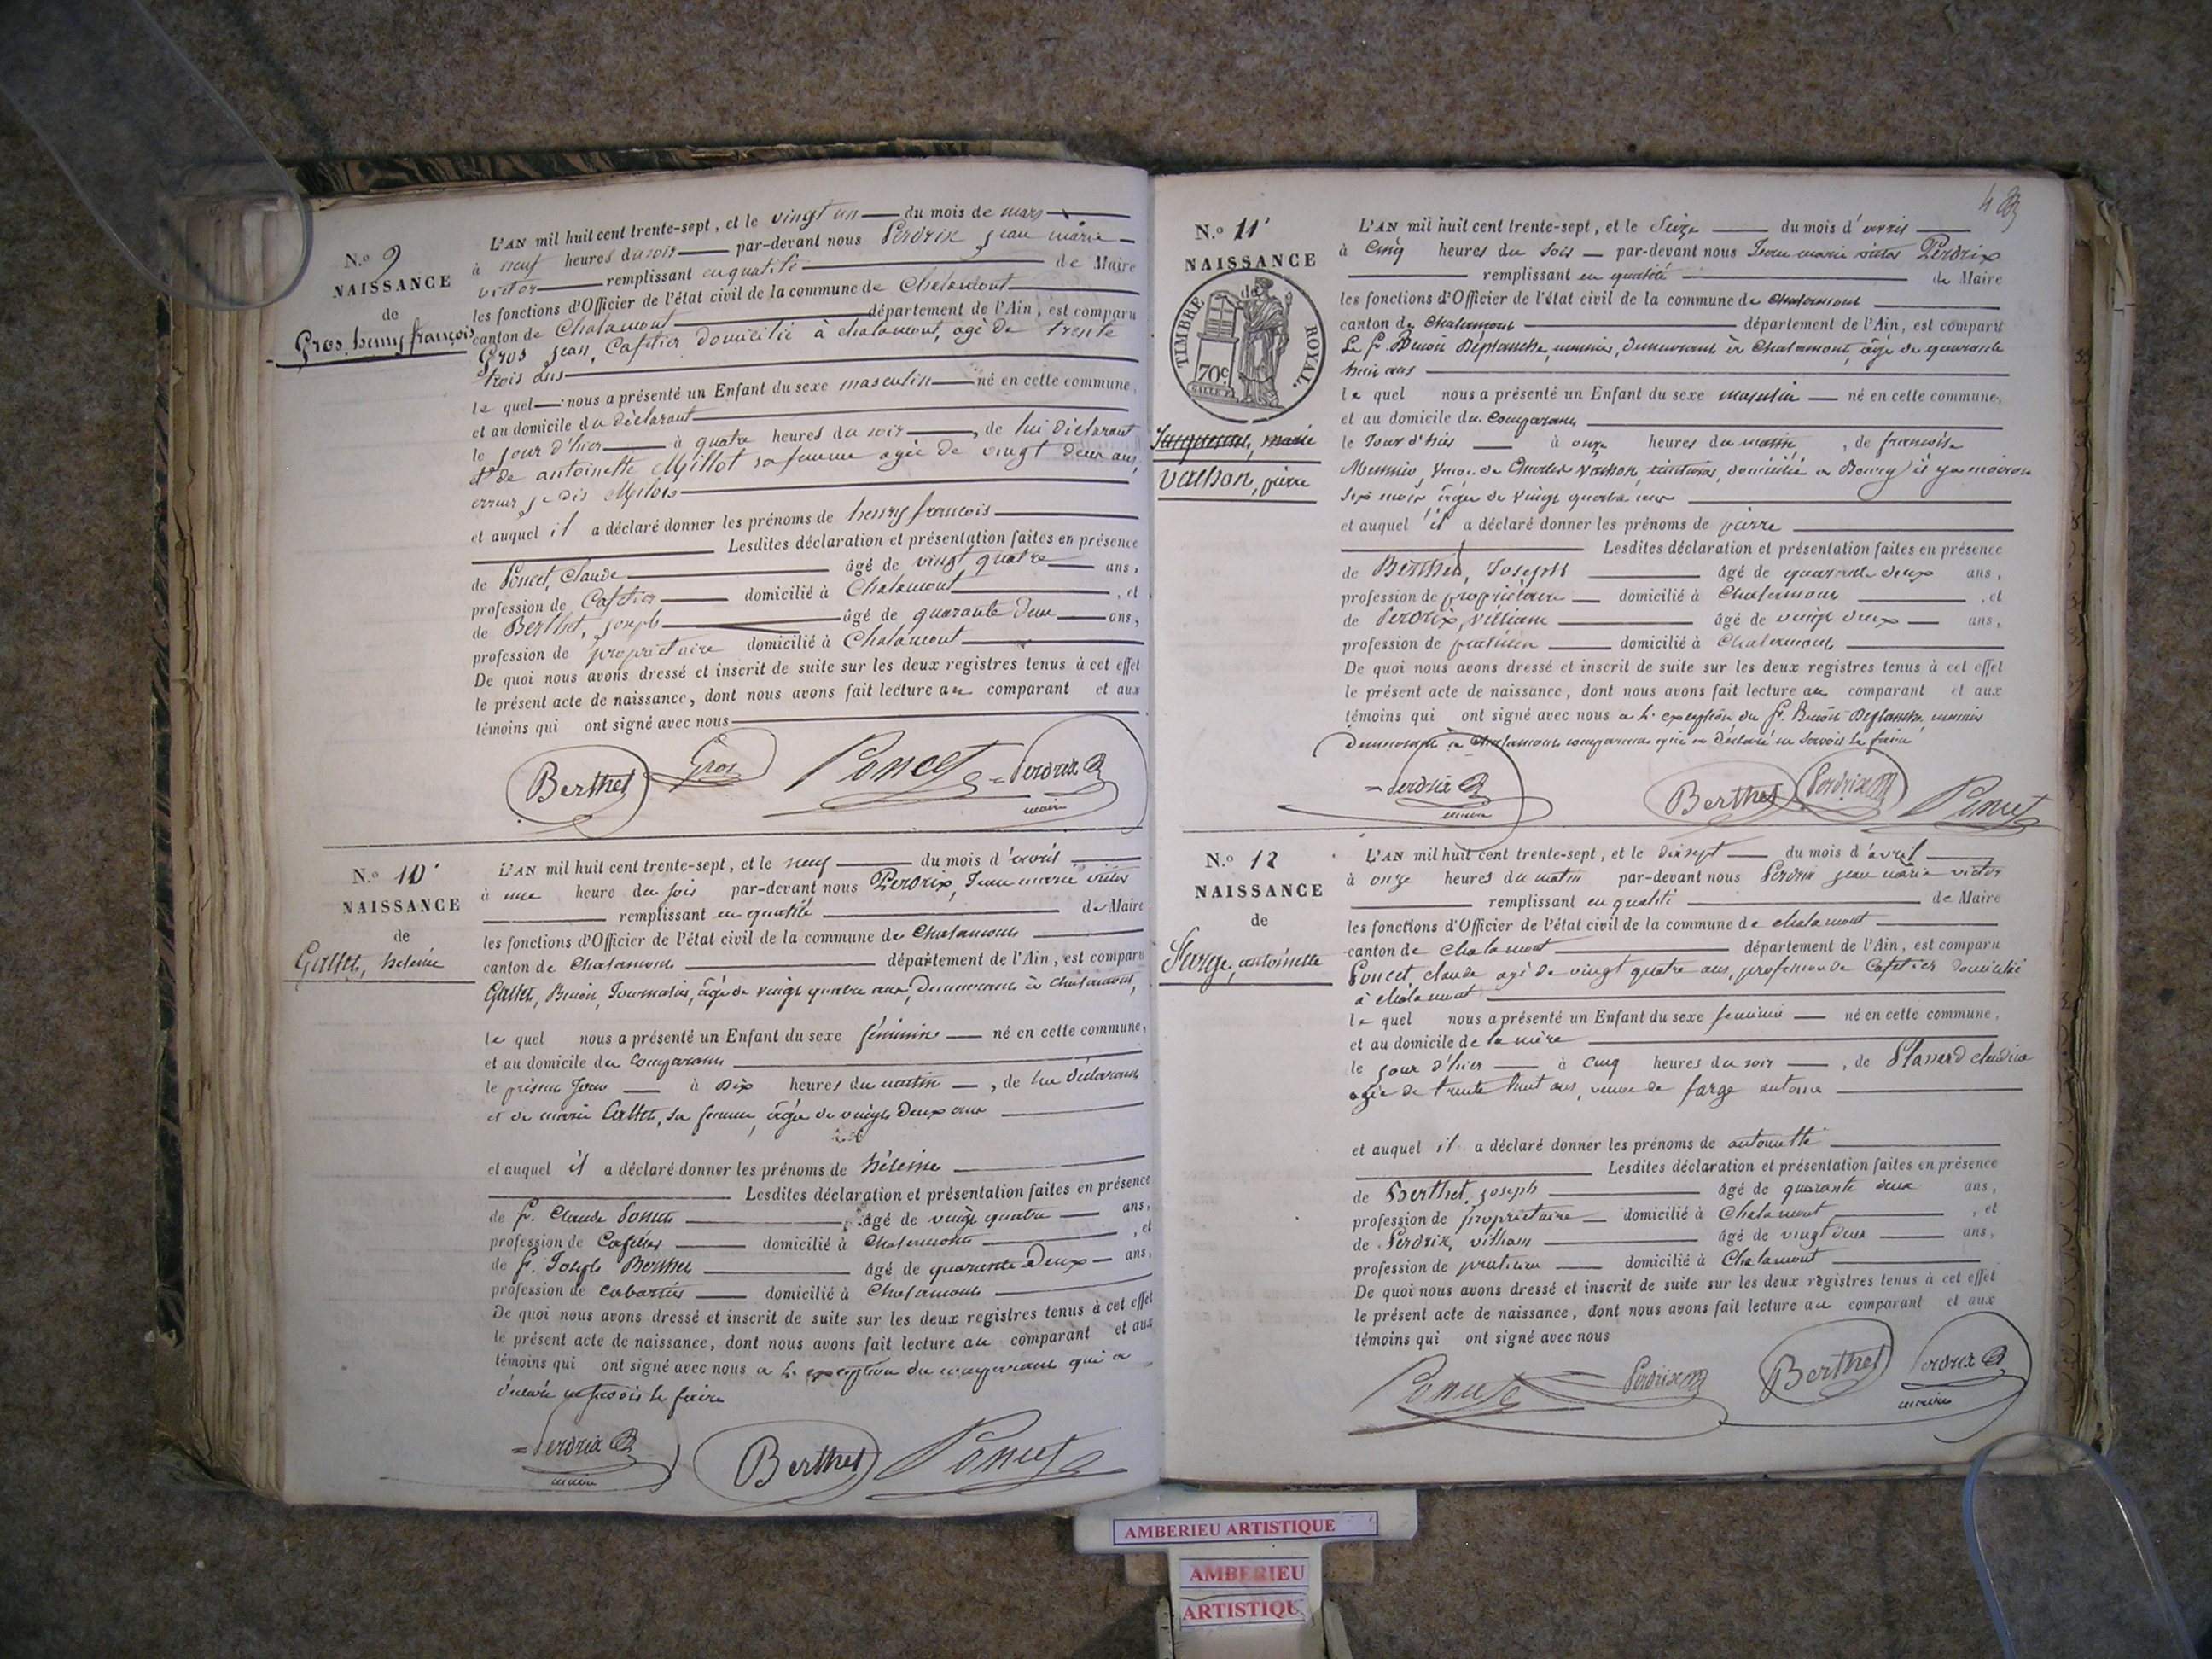 N.º 9
NAISSANCE
de
Gros, henry françois
L'AN mil huit cent trente-sept, et le vingt un du mois de mars
à neuf heures du soir par-devant nous Perdrix jean marie
victor remplissant en qualité de Maire
les fonctions d'Officier de l'état civil de la commune de Chalamont
canton de Chalamont département de l'Ain, est comparu
Gros jean, Cafetier domicilié à chalamont, agé de trente
trois ans
le quel nous a présenté un Enfant du sexe masculin né en cette commune,
et au domicile du déclarant
le jour d'hier à quatre heures du soir, de lui déclarant
et de antoinette Millot sa femme agée de vingt deux ans,
erreur je dis
et auquel il a déclaré donner les prénoms de henry francois
Lesdites déclaration et présentation faites en présence
de Poncet, Claude âgé de vingt quatre ans,
profession de Cafetier domicilié à Chalamont, et
de Berthet, joseph âgé de quarante deux ans,
profession de propriétaire domicilié à Chalamont
De quoi nous avons dressé et inscrit de suite sur les deux registres tenus à cet effet
le présent acte de naissance, dont nous avons fait lecture au comparant et aux
témoins qui ont signé avec nous
Berthet Gros Poncet Perdrix
maire
N.º 10
NAISSANCE
de
hélène
L'AN mil huit cent trente-sept, et le neuf du mois d'avril
à une heure du soir par-devant nous Perdrix, Jean marie victor
remplissant en qualité de Maire
les fonctions d'Officier de l'état civil de la commune de Chalamont
canton de Chalamont département de l'Ain, est comparu
Benoit, Journalier, âgé de vingt quatre ans, demeurant à Chalamont,
le quel nous a présenté un Enfant du sexe féminin né en cette commune,
et au domicile du Comparant
le présent jour à dix heures du matin, de lui déclarant
et de marie sa femme, âgée de vingt deux ans
et auquel il a déclaré donner les prénoms de hélène
Lesdites déclaration et présentation faites en présence
de Sr. Claude Poncet âgé de vingt quatre ans,
profession de Cafetier domicilié à Chalamont, et
de Sr. Joseph Berthet âgé de quarante deux ans,
profession de cabartier domicilié à Chalamont
De quoi nous avons dressé et inscrit de suite sur les deux registres tenus à cet effet
le présent acte de naissance, dont nous avons fait lecture au comparant et aux
témoins qui ont signé avec nous a l'exception du comparant qui a
déclaré ne savoir le faire
Perdrix Berthet Poncet
maire
N.º 11
NAISSANCE
de
TIMBRE ROYAL.
70c
marie
Vachon, pierre
L'AN mil huit cent trente-sept, et le Seize du mois d'avril
à Cinq heures du soir par-devant nous Jean marie victor Perdrix
remplissant en qualité de Maire
les fonctions d'Officier de l'état civil de la commune de Chalamont
canton de Chalamont département de l'Ain, est comparu
Le Sr. Benoit Déplanche, meunier, demeurant à Chalamont, âgé de quarante
huit ans
le quel nous a présenté un Enfant du sexe masculin né en cette commune,
et au domicile du Comparant
le Jour d'hier à onze heures du matin, de francoise
Meunier, veuve de Charles Vachon, domicilié a Bourg il y a environ
six mois âgée de vingt quatre ans
et auquel il a déclaré donner les prénoms de pierre
Lesdites déclaration et présentation faites en présence
de Berthet, Joseph âgé de quarante deux ans,
profession de propriétaire domicilié à Chalamont, et
de Perdrix, William âgé de vingt deux ans,
profession de praticien domicilié à Chalamont
De quoi nous avons dressé et inscrit de suite sur les deux registres tenus à cet effet
le présent acte de naissance, dont nous avons fait lecture au comparant et aux
témoins qui ont signé avec nous a l'exception du Sr. Benoit Deplanche, meunier
demeurant à Chalamont comparant qui a déclaré ne savoir le faire
Perdrix Berthet Perdrix Poncet
maire
N.º 12
NAISSANCE
de
Farge, antoinette
L'AN mil huit cent trente-sept, et le dix sept du mois d'avril
à onze heures du matin par-devant nous Perdrix jean marie victor
remplissant en qualité de Maire
les fonctions d'Officier de l'état civil de la commune de chalamont
canton de Chalamont département de l'Ain, est comparu
Poncet, claude agé de vingt quatre ans, profession de Cafetier domicilié
à chalamont
le quel nous a présenté un Enfant du sexe feminin né en cette commune,
et au domicile de la mère
le jour d'hier à cinq heures du soir, de Planard claudine
agée de trente huit ans, veuve de farge antoine
et auquel il a déclaré donner les prénoms de antoinette
Lesdites déclaration et présentation faites en présence
de Berthet, joseph âgé de quarante deux ans,
profession de propriétaire domicilié à Chalamont, et
de Perdrix, William âgé de vingt deux ans,
profession de praticien domicilié à Chalamont
De quoi nous avons dressé et inscrit de suite sur les deux registres tenus à cet effet
le présent acte de naissance, dont nous avons fait lecture au comparant et aux
témoins qui ont signé avec nous
Poncet Perdrix Berthet Perdrix
maire
AMBERIEU ARTISTIQUE
AMBERIEU
ARTISTIQUE